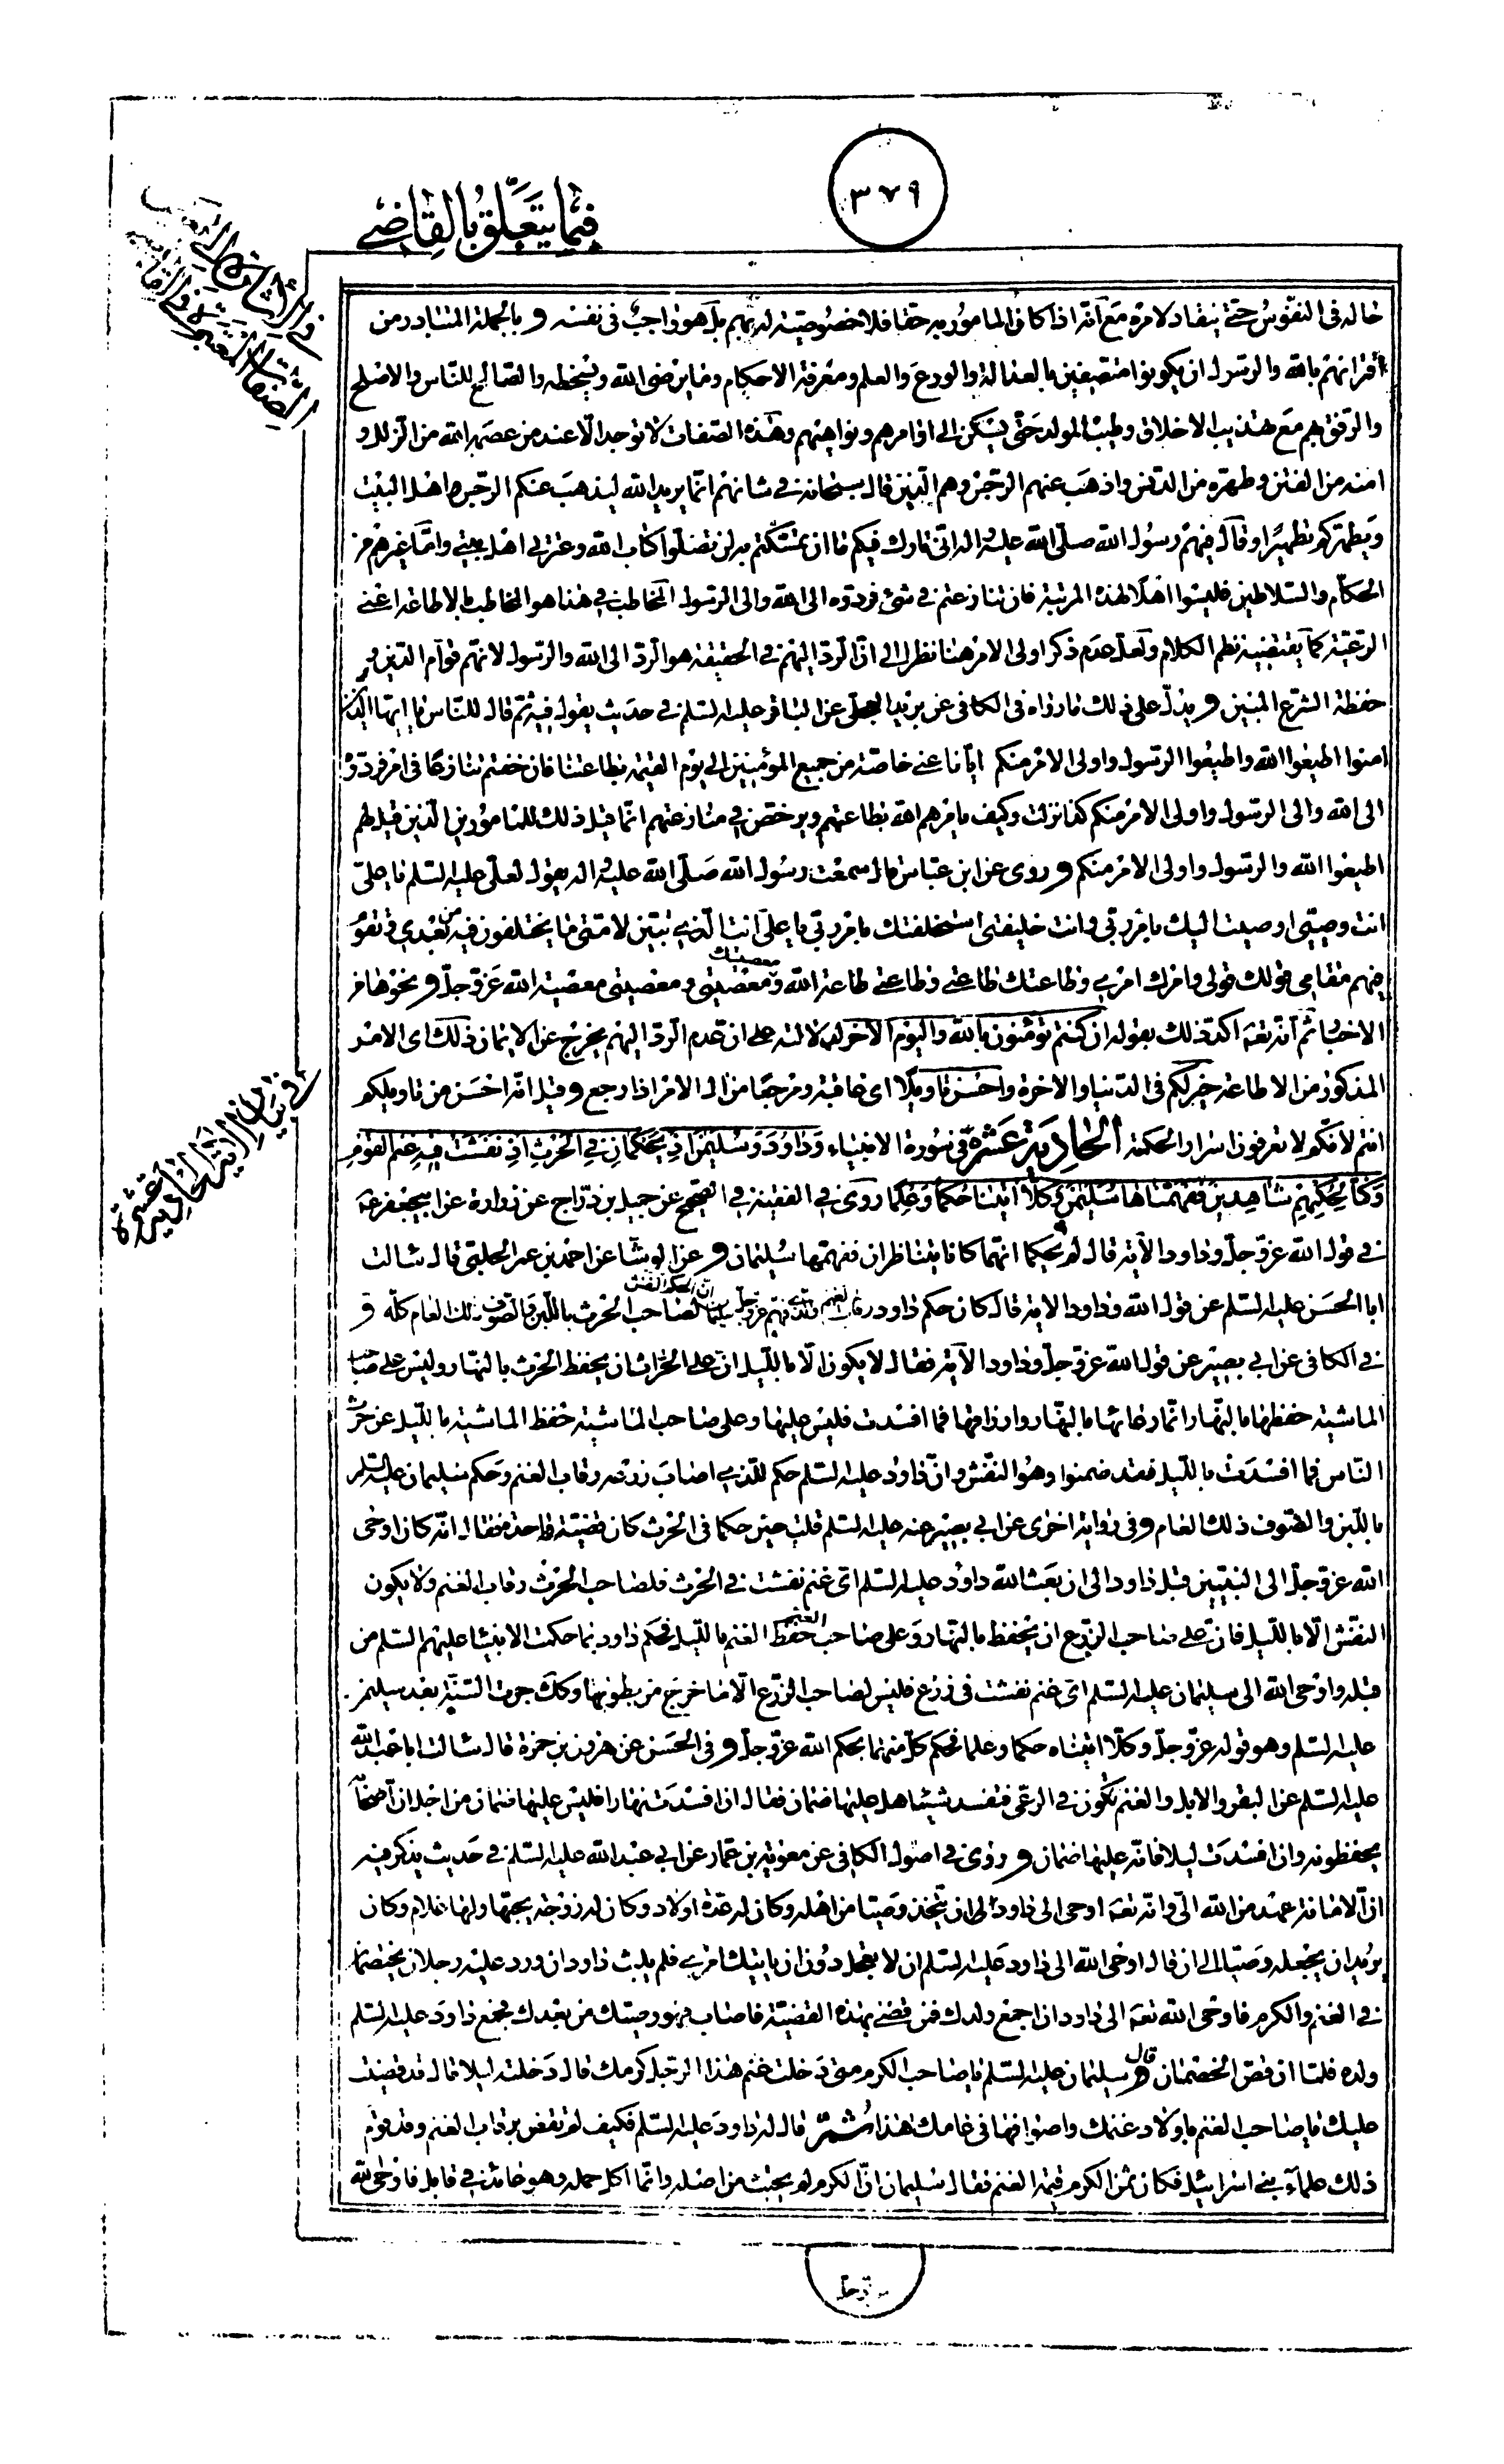 ٣٧٩
فيما يتعلق بالقاضي
حاله في النفوس حتى ينقاد لامره مع انه اذا كان المامور به حقا فلا خصوصية له بهم بل هو واجب في نفسه و بالجملة المتبادر من
اقترانهم بالله والرسول ان يكونوا متصفين بالعدالة والورع والعلم ومعرفة الاحكام وما يرضى الله ويسخطه والصالح للناس والاصلح
والرفق بهم مع تهذيب الاخلاق وطيب المولد حتى يسكن الى اوامرهم ونواهيهم وهذه الصفات لا توجد الا عند من عصمه الله من الزلل و
امنه من الفتن وطهره من الدنس واذهب عنهم الرجس وهم الذين قال سبحانه في شانهم انما يريد الله ليذهب عنكم الرجس اهل البيت
ويطهركم تطهيرا وقال فيهم رسول الله صلى الله عليه واله انى تارك فيكم ما ان تمسكتم به لن تضلوا كتاب الله وعترتي اهل بيتي واما غيرهم من
الحكام والسلاطين فليسوا اهلا لهذه المرتبة فان تنازعتم في شئ فردوه الى الله والى الرسول المخاطب في هذا هو المخاطب بالاطاعة اعني
الرعية كما يقتضيه نظم الكلام ولعل عدم ذكر اولى الامر هنا نظر الى ان الرد اليهم في الحقيقة هو الرد الى الله والرسول لانهم قوام الدين و
حفظة الشرع المبين و يدل على ذلك ما رواه في الكافى عن بريد العجلى عن الباقر عليه السلم في حديث يقول فيه ثم قال للناس يا ايها الذين
امنوا اطيعوا الله واطيعوا الرسول واولى الامر منكم ايانا عنى خاصة من جميع المؤمنين الى يوم القيمة بطاعتنا فان خفتم تنازعا في امر فردوه
الى الله والى الرسول واولى الامر منكم كذا نزلت وكيف يامرهم الله بطاعتهم ويرخص في منازعتهم انما قيل ذلك للمامورين الذين قيل لهم
اطيعوا الله والرسول واولى الامر منكم و روى عن ابن عباس قال سمعت رسول الله صلى الله عليه واله يقول لعلى عليه السلم يا على
انت وصيتى اوصيت اليك بامر ربي وانت خليفتى استخلفتك بامر ربي يا على انت الذي تبين لامتى ما يختلفون فيه من بعدي وتقوم
فيهم مقامى قولك قولى وامرك امري وطاعتك طاعتي وطاعتي طاعة الله ومعصيتك معصيتى ومعصيتى معصية الله عز وجل و نحوها من
الاخبار ثم انه تعه اكد ذلك بقوله ان كنتم تؤمنون بالله واليوم الاخر لدلالته على ان عدم الرد اليهم يخرج عن الايمان ذلك اى الامر
المذكور من الاطاعة خير لكم في الدنيا والاخرة واحسن تاويلا اى عاقبة ومرجعا من ال الامر اذا رجع و قيل انه احسن من تاويلكم
انتم لانكم لا تعرفون اسرار الحكمة الحادية عشرة في سورة الانبياء وداود وسليمن اذ يحكمان في الحرث اذ نفشت فيه غنم القوم
وكنا لحكمهم شاهدين ففهمناها سليمن وكلا اتينا حكما وعلما روى في الفقيه في الصحيح عن جميل بن دراج عن زرارة عن ابيجعفر عه
في قول الله عز وجل وداود الآية قال لم يحكما انهما كانا يتناظران ففهمها سليمان و عن الوشا عن احمد بن عمر الحلبي قال سالت
ابا الحسن عليه السلم عن قول الله وداود الاية قال كان حكم داود رقاب الغنم والذي فهم عز وجل سليمان ان الحكم لصاحب الحرث باللبن والصوف ذلك العام كله و
في الكافى عن ابي بصير عن قول الله عز وجل وداود الآية فقال لا يكون الا بالليل ان على الحراث ان يحفظ الحرث بالنهار وليس على صاحب
الماشية حفظها بالنهار انما رعايتها بالنهار وارزاقها فما افسدت فليس عليها وعلى صاحب الماشية حفظ الماشية بالليل عن حرث
الناس فما افسدت بالليل فقد ضمنوا وهو النفش وان داود عليه السلم حكم للذي اصاب زرعه رقاب الغنم وحكم سليمان عليه السلم
باللبن والصوف ذلك العام و في رواية اخرى عن ابي بصير عنه عليه السلم قلت حين حكما في الحرث كان قضية واحدة فقال انه كان اوحى
الله عز وجل الى النبيين قبل داود الى ان بعث الله داود عليه السلم اى غنم نفشت في الحرث فلصاحب الحرث رقاب الغنم ولا يكون
النفش الا بالليل فان على صاحب الزرع ان يحفظ بالنهار وعلى صاحب الغنم حفظ الغنم بالليل فحكم داود بما حكمت الانبيا عليهم السلم من
قبله واوحى الله الى سليمان عليه السلم اى غنم نفشت في زرع فليس لصاحب الزرع الا ما خرج من بطونها وكك جرت السنة بعد سليمن
عليه السلم وهو قوله عز وجل وكلا اتيناه حكما وعلما فحكم كل منهما بحكم الله عز وجل و في الحسن عن هرون بن حمزة قال سالت ابا عبد الله
عليه السلم عن البقر والابل والغنم يكون في الرعى فتفسد شيئا هل عليها ضمان فقال ان افسدت نهارا فليس عليها ضمان من اجل ان اصحابه
يحفظونه وان افسدت ليلا فانه عليها ضمان و روى في اصول الكافى عن معوية بن عمار عن ابي عبد الله عليه السلم في حديث يذكر فيه
ان الامامة عهد من الله الى وانه تعه اوحى الى داود الى ان يتخذ وصيا من اهله وكان له عدة اولاد وكان له زوجة يحبها ولها غلام وكان
يريد ان يجعله وصيا الى ان قال اوحى الله الى داود عليه السلم ان لا تعجل دون ان ياتيك امري فلم يلبث داود ان ورد عليه رجلان يختصمان
في الغنم والكرم فاوحى الله تعه الى داود ان اجمع ولدك فمن قضى بهذه القضية فاصاب فهو وصيك من بعدك فجمع داود عليه السلم
ولده فلما ان قص الخصمان قال سليمان عليه السلم يا صاحب الكرم متى دخلت غنم هذا الرجل كرمك قال دخلته ليلا قال قد قضيت
عليك يا صاحب الغنم باولاد غنمك واصوافها في عامك هذا ثم قال له داود عليه السلم فكيف لم تقض برقاب الغنم وقد قوم
ذلك علماء بني اسرائيل فكان ثمن الكرم قيمة الغنم فقال سليمان ان الكرم لم يجتث من اصله وانما اكل حمله وهو عائد في قابل فاوحى الله
في بيان الاية الحادية عشرة